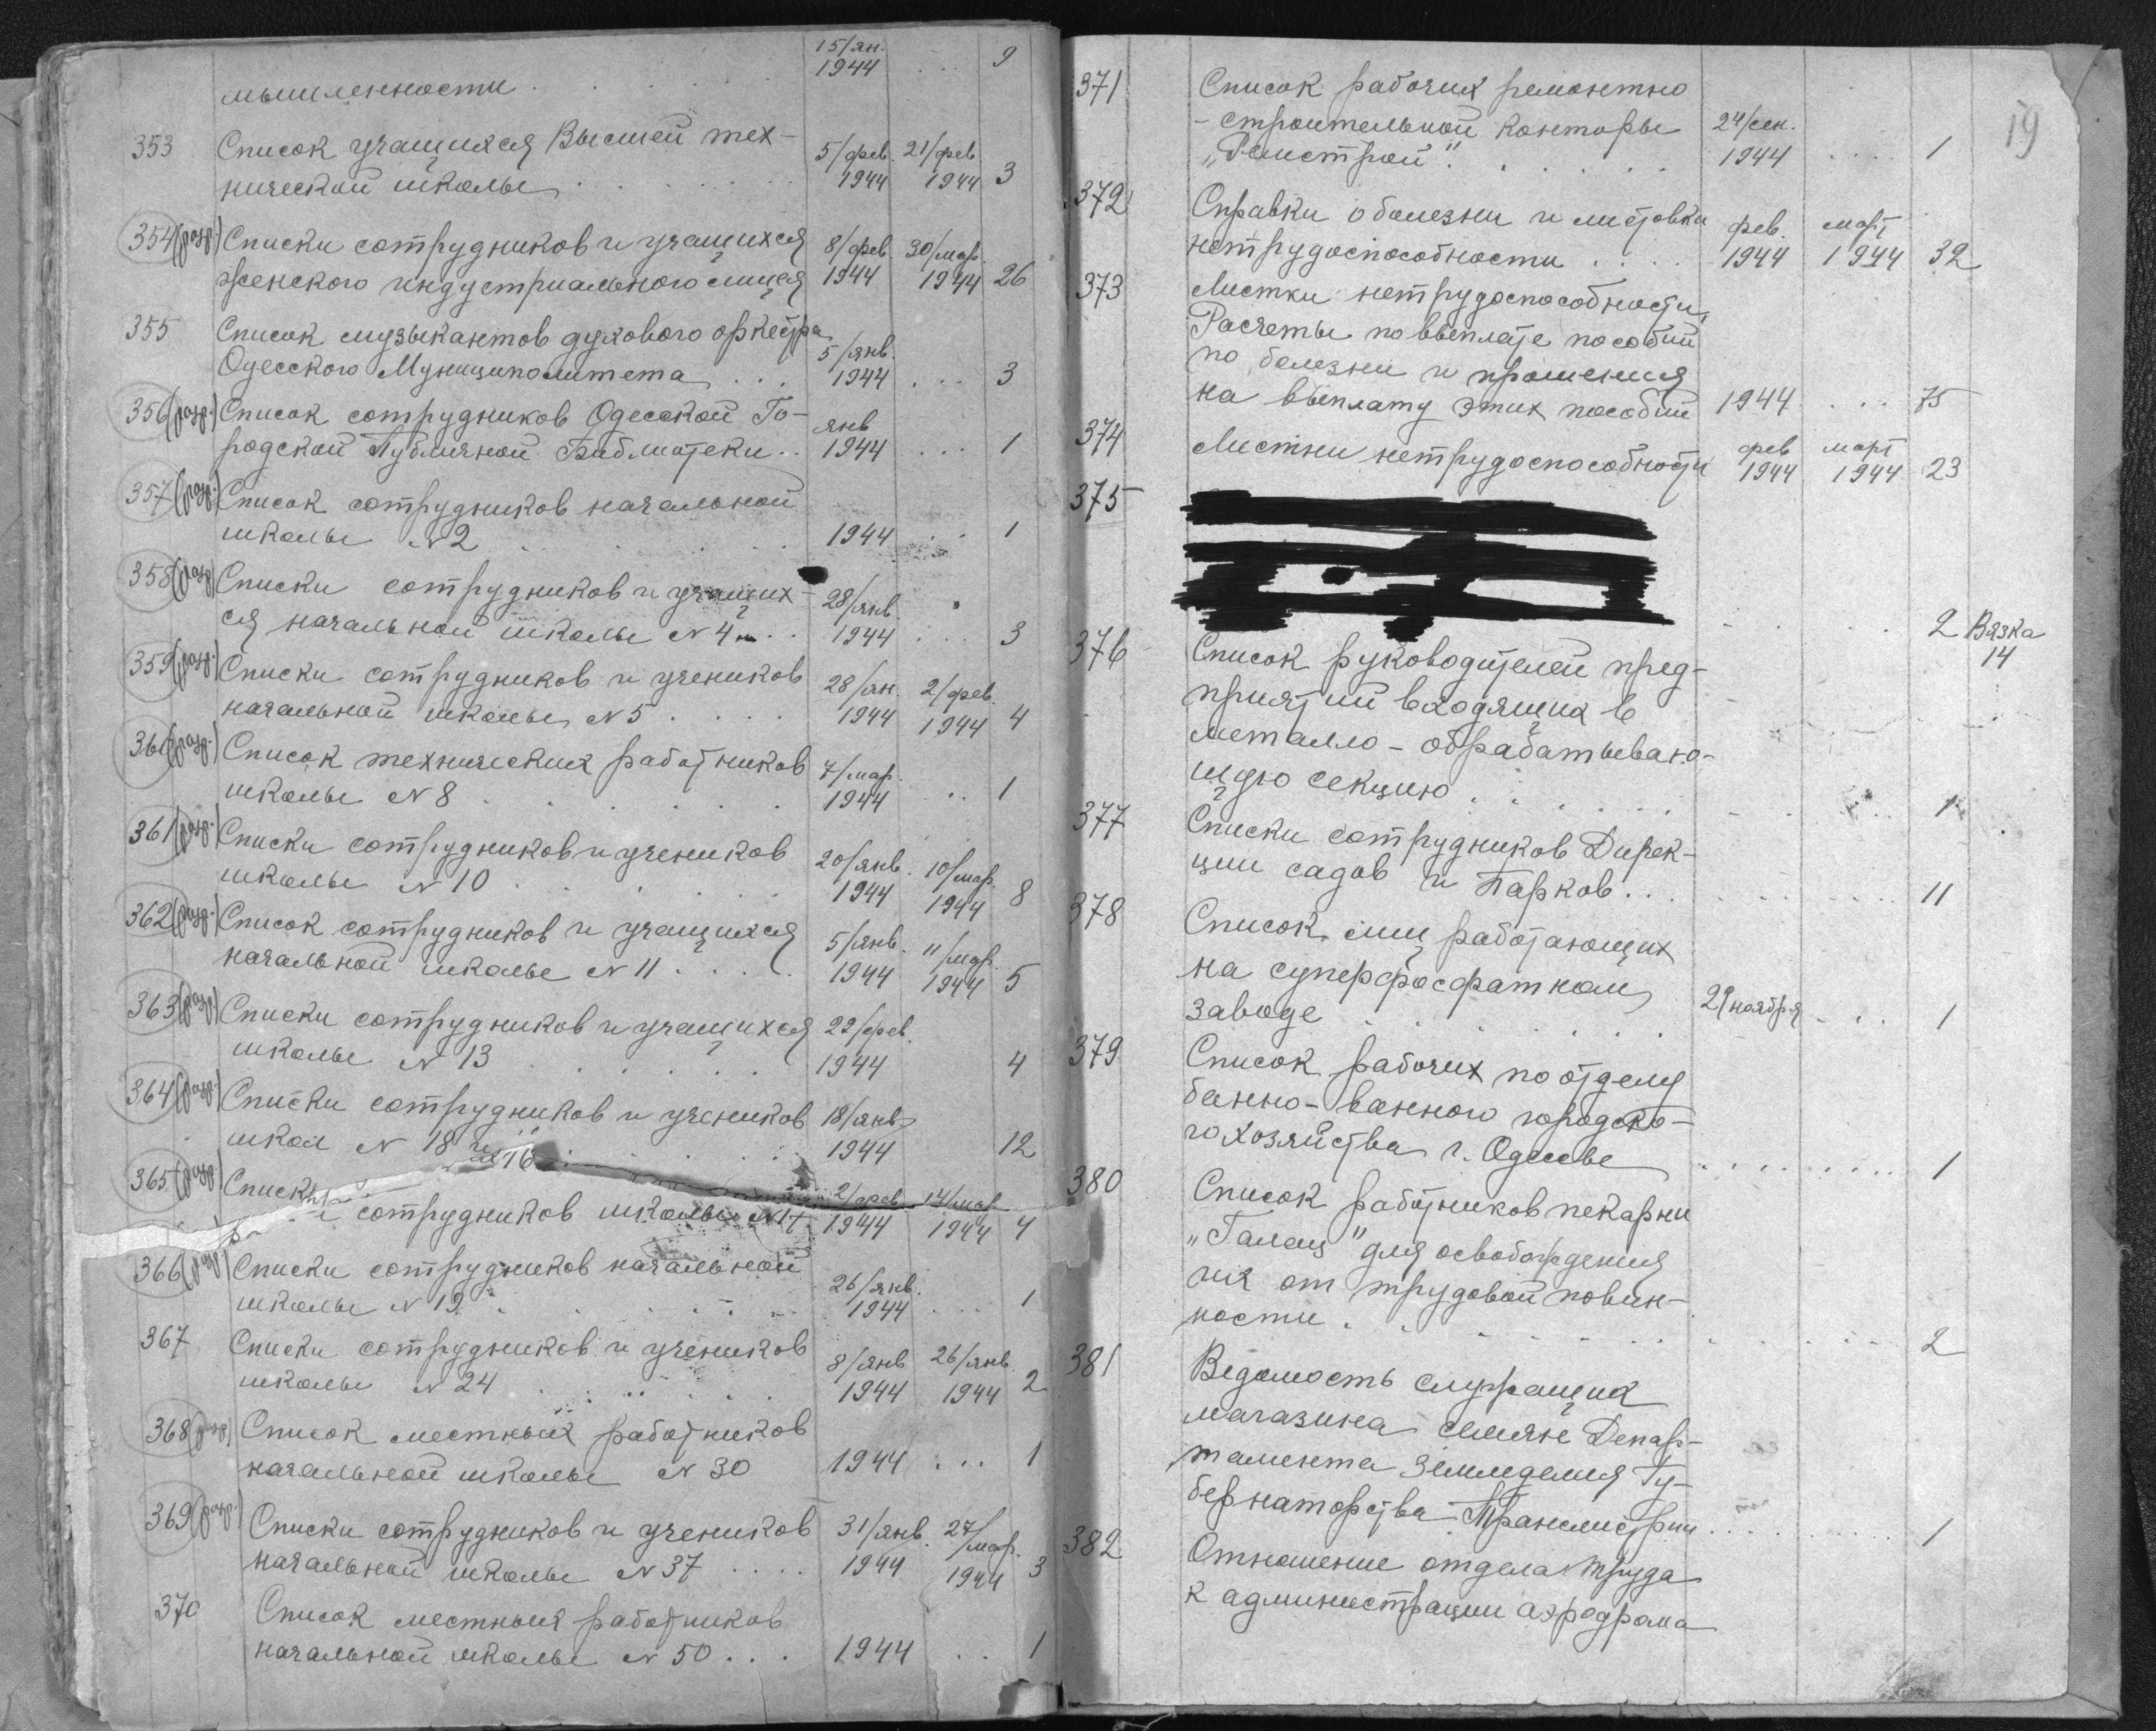 15/ян.
мышленности . . . . 1944 . . . 9
353 Список учащихся Высшей тех-
5/фев. 21/фев.
нической школы . . . . . . 1944 1944 3
354 (разр.) Списки сотрудников и учащихся 8/фев. 30/мар.
женского индустриального лицея 1944 1944 26
355 Список музыкантов духового оркестра
5/янв.
Одесского Муниципалитета . . . 1944 . . . 3
356 (разр.) Список сотрудников Одесской Го-
янв
родской Публичной Библиотеки . . 1944 . . . 1
357 (разр.) Список сотрудников начальной
школы N 2 . . . . . . 1944 . . 1
358 (разр) Списки сотрудников и учащих-
28/янв.
ся начальной школы N 4 . . 1944 . . . 3
359 (разр.) Списки сотрудников и учеников
28/ян. 2/фев.
начальной школы N 5 . . . . 1944 1944 4
360 (разр.) Список технических работников
7/мар.
школы N 8 . . . . . . . 1944 . . 1
361 (разр.) Списки сотрудников и учеников
20/янв. 10/мар.
школы N 10 . . . . . . 1944 1944 8
362 (разр.) Список сотрудников и учащихся
5/янв. 11/мар.
начальной школы N 11 . . . . 1944 1944 5
363 (разр) Списки сотрудников и учащихся 29/фев.
школы N 13 . . . . . . 1944 4
364 (разр.) Списки сотрудников и учеников 18/янв
школ N 18 и
N 16 . . . . . . 1944 12
365 (разр) Списки
2/фев 14/мар
сотрудников школы N 17 1944 1944 4
366 (разр) Списки сотрудников начальной
26/янв.
школы N 19 . . . . . . 1944 . . . . 1
367 Списки сотрудников и учеников
8/янв 26/янв.
школы N 24 . . . . . . 1944 1944 2
368 (разр) Список местных работников
начальной школы N 30 1944 . . . 1
369 (разр.) Списки сотрудников и учеников 31/янв. 27/мар.
начальной школы N 37 . . . . 1944 1944 3
370 Список местных работников
начальной школы N 50 . . . 1944 . . 1
19
371 Список рабочих ремонтно
- строительной конторы 24/сен.
„Ремстрой“ . . . . . . 1944 . . . . 1
372 Справки о болезни и листовки фев. март
нетрудоспособности . . . . 1944 1944 32
373 Листки нетрудоспособности,
Расчеты по выплате пособий
по болезни и прошения
на выплату этих пособий 1944 . . . 75
374 Листки нетрудоспособности фев март
1944 1944 23
375
2 Вязка
14
376 Список руководителей пред-
приятий входящих в
металло - обрабатываю-
щую секцию . . . . . . 1
377 Списки сотрудников Дирек-
ции садов и Парков . . . 11
378 Список лиц работающих
на суперфосфатном
заводе . . . . . . . 29 ноября . . . 1
379 Список рабочих по отделу
банно - ванного городско-
го хозяйства г. Одессы . . . . . . . . 1
380 Список работников пекарни
„Галац“ для освобождения
их от трудовой повин-
ности . . . . . . . . 2
381 Ведомость служащих
магазина семян Депар-
тамента Земледелия Гу-
бернаторства Транснистрии . . . . . . . . 1
382 Отношение отдела труда
к администрации аэродрома